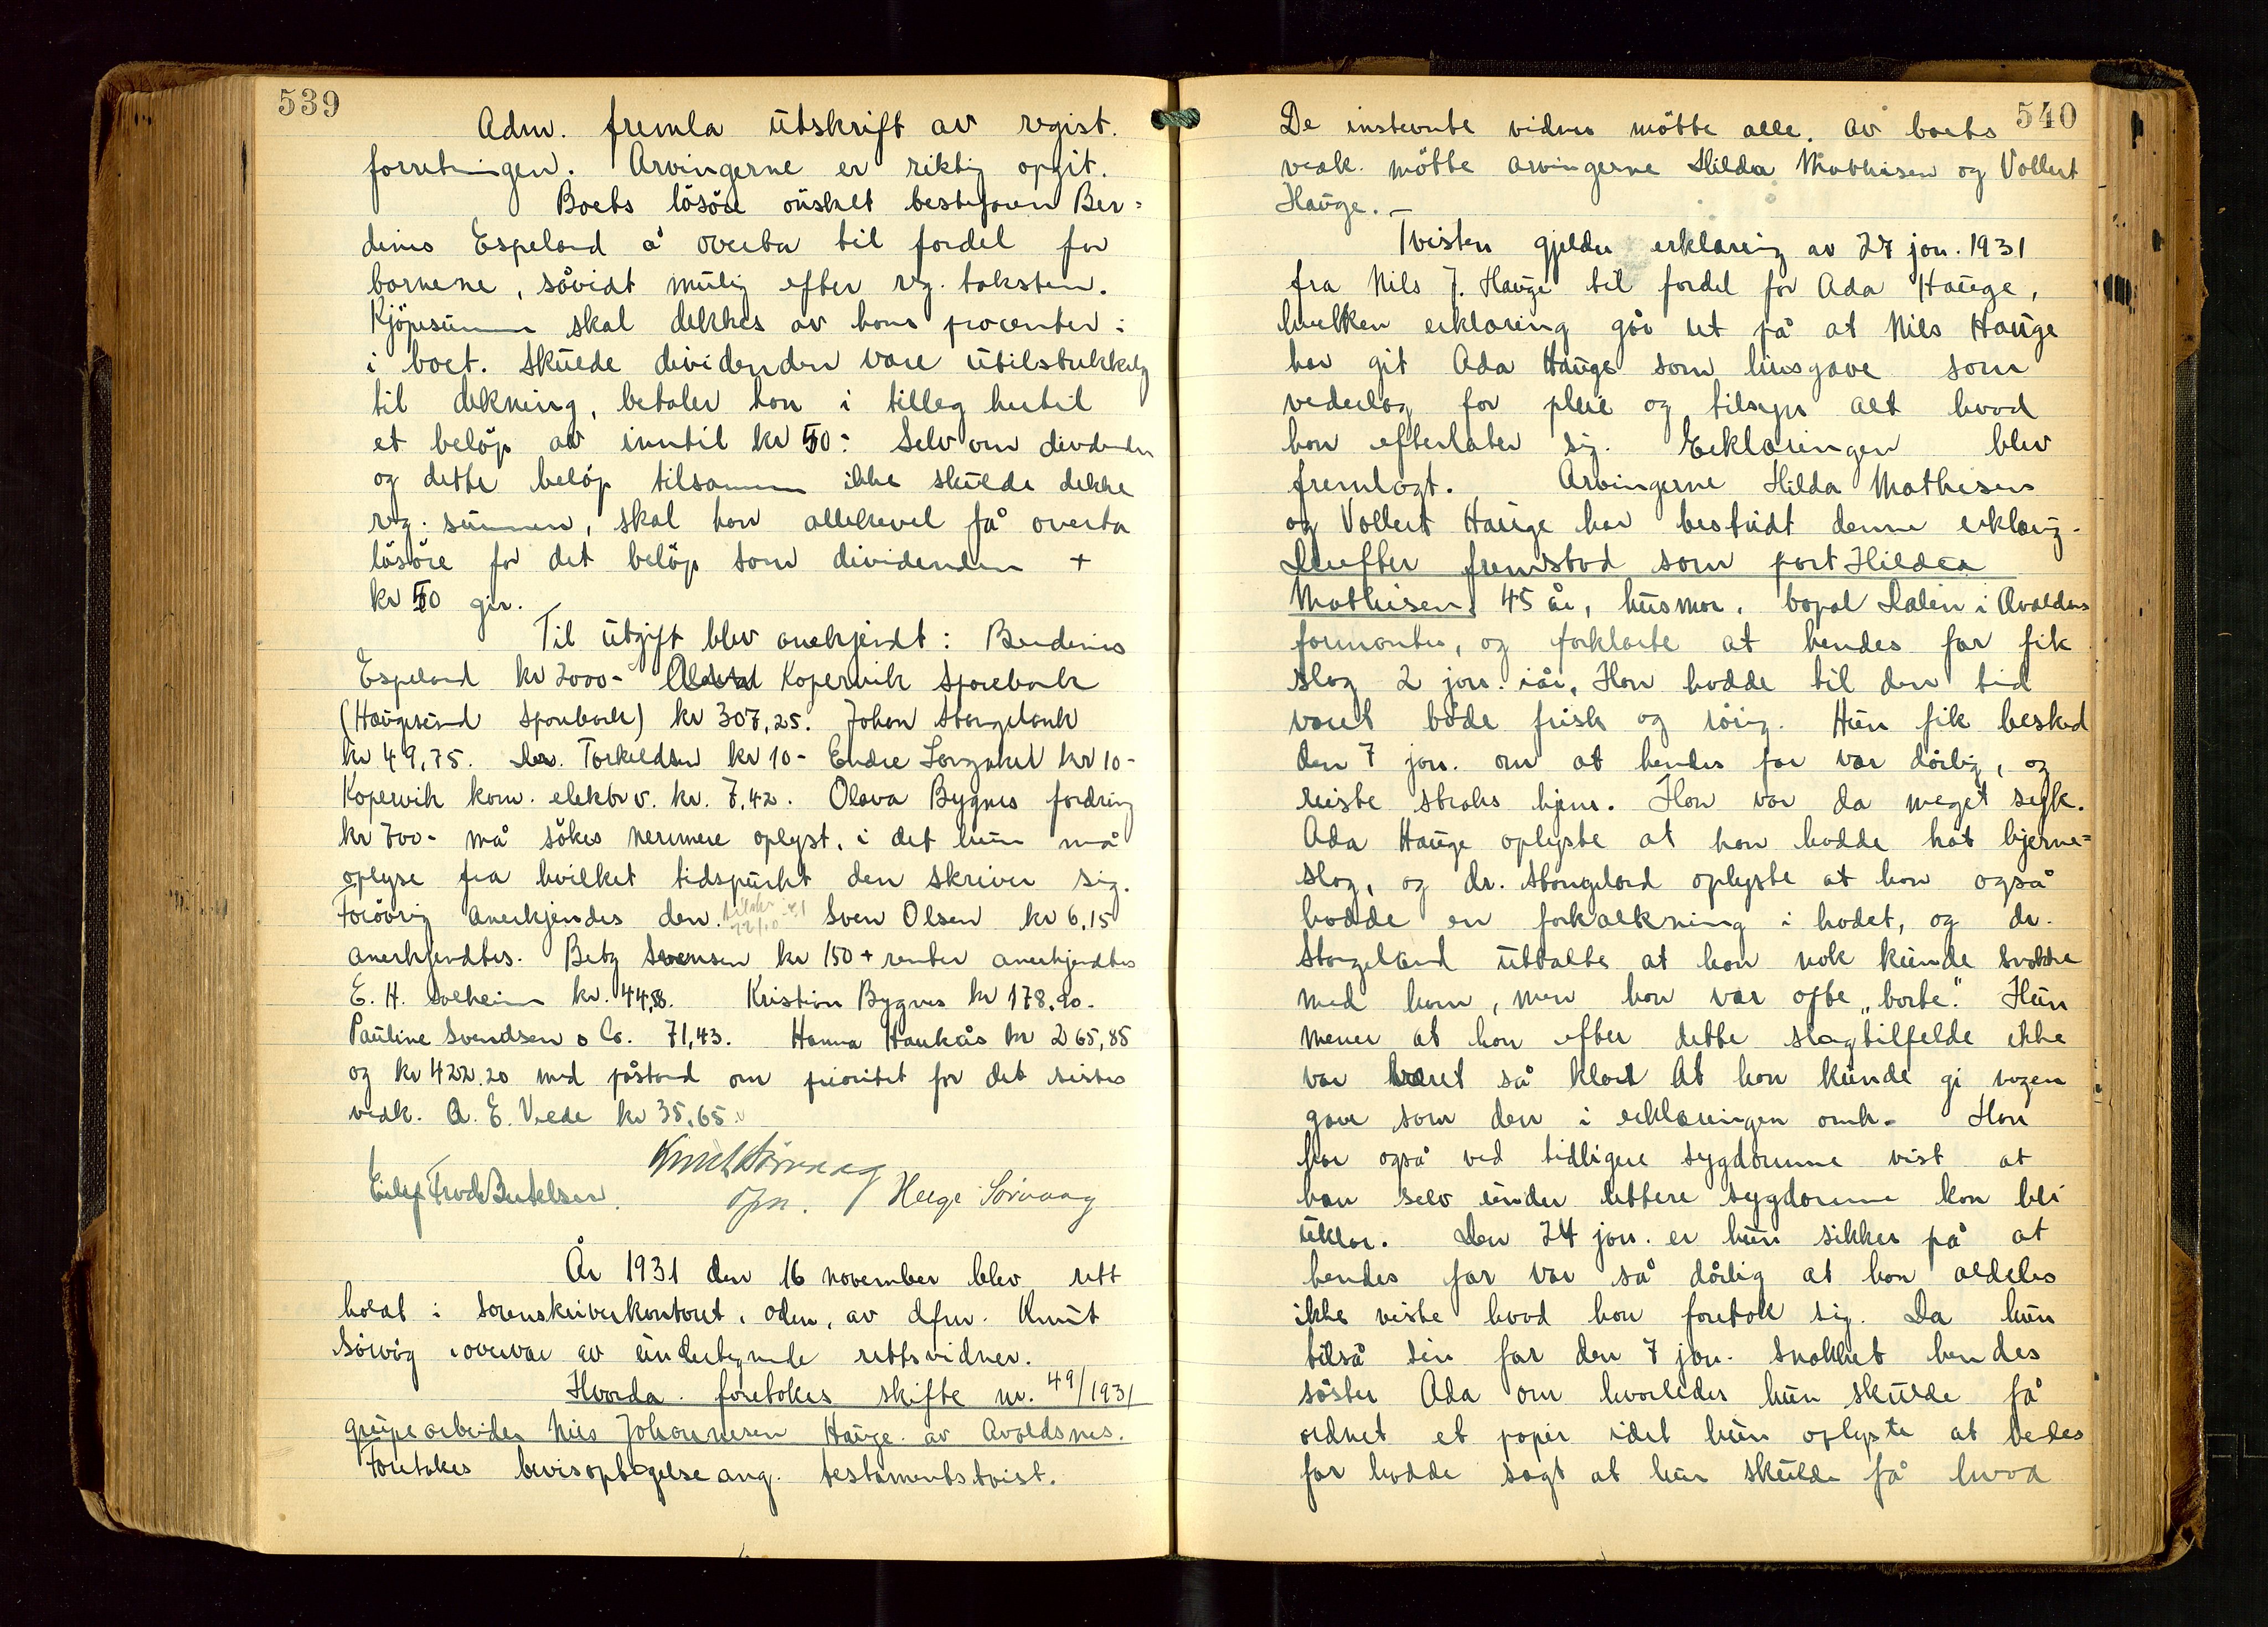 539
Adm. fremla utskrift av regist.
forretningen. Arvingerne er riktig opgit.
Boets lösöre önsket bestefaren Ber=
dines Espeland å overta til fordel for
barnene, såvidt mulig efter reg. taksten.
Kjöpesummen skal dekkes av hans procenter
i boet. Skulde dividenden være utilstrekkelig
til dekning, betaler han i tillæg hertil
et belöp av inntil kr 50.- Selv om dividenden
og dette belöp tilsammen ikke skulde dekke
reg. summen, skal han allikevel få overta
lösöre for det belöp som dividenden +
kr 50 gir.
Til utgift blev anerkjendt: Berdines
Espeland kr 2000- Kopervik Sparebank
(Haugesund Sparebank) kr 307,25. Johan Stangeland
kr 49,75. Dr. Torkildsen kr 10- Endre kr 10-
Kopervik kom. elektr v. kr. 7,42. Olava Bygnes fordring
kr 700- må sökes nærmere oplyst, i det hun må
oplyse fra hvilket tidspunkt den skriver sig.
Forövrig anerkjendes den. Sven Olsen kr 6,15
anerkjendtes. Betzy Svensen kr 150 + renter anerkjendtes
E. H. Solheim kr. 44,58. Kristian Bygnes kr 178.90.
Pauline Svendsen & Co. 71,43. Hanna Haukås kr 265,85
og kr 422.20 med påstand om prioritet for det sistes
vedk. A. E. Vedde kr 35,65.
Knut Sørvaag
Eilif Frode Bertelsen. dfm. Helge Sørvaag
År 1931 den 16 november blev rett
holdt i sorenskriverkontoret, Oden, av dfm. Knut
Sörvåg i overvær av undertegnede rettsvidner.
Hvorda foretokes skifte nr. 49/1931
grubearbeider Nils Johannesen Hauge av Avaldsnes.
Foretokes bevisoptagelse ang. testamentstvist.
540
De instevnte vidner mötte alle. Av boets
vedk. mötte arvingerne Hilda Mathisen og Vollert
Hauge.
Tvisten gjelder erklæring av 24 jan. 1931
fra Nils J. Hauge til fordel for Ada Hauge,
hvilken erklæring går ut på at Nils Hauge
har git Ada Hauge som livsgave som
vederlag for pleie og tilsyn alt hvad
han efterlater sig. Erklæringen blev
fremlagt. Arvingerne Hilda Mathisen
og Vollert Hauge har bestridt denne erklæring.
Derefter fremstod som part Hilda
Mathisen, 45 år, husmor, bopæl Dalen i Avaldsnes
formantes, og forklarte at hendes far fik
slag 2 jan. iår. Han hadde til den tid
været både frisk og rörig. Hun fik besked
den 7 jan. om at hendes far var dårlig, og
reiste straks hjem. Han var da meget syk.
Ada Hauge oplyste at han hadde hat hjerne=
slag, og dr. Stangeland oplyste at han også
hadde en forkalkning i hodet, og dr.
Stangeland uttalte at han nok kunde snakke
med ham, men han var ofte „borte". Hun
mener at han efter dette slagtilfelde ikke
var været så klar at han kunde gi nogen
gave som den i erklæringen omh. Han
har også ved tidligere sygdomme vist at
han selv under lettere sygdomme kan bli
uklar. Den 24 jan. er hun sikker på at
hendes far var så dårlig at han aldeles
ikke visste hvad han foretok sig. Da hun
tilså sin far den 7 jan. snakket hendes
söster Ada om hvorledes hun skulde få
ordnet et papir idet hun oplyste at deres
far hadde sagt at hun skulde få hvad